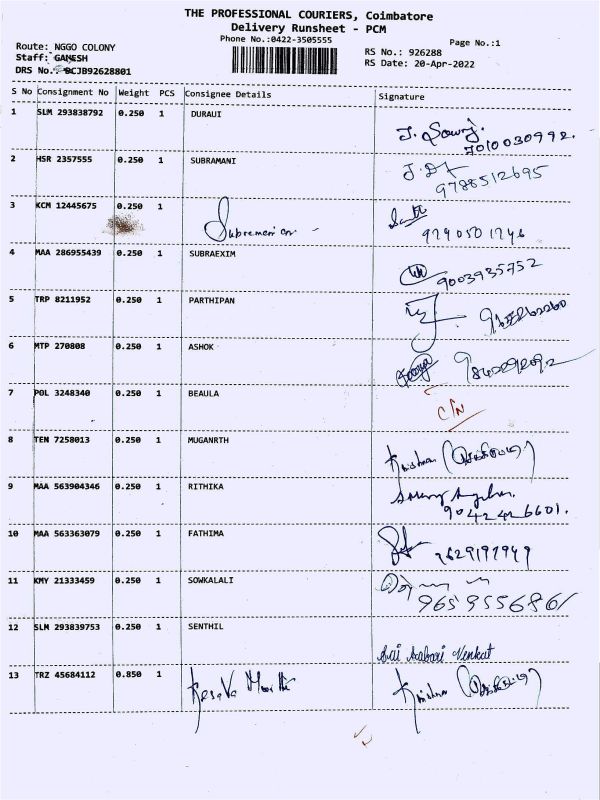 THE PROFESSIONAL COURIERS, Coimbatore
Delivery Runsheet - PCM
Phone No.:0422-3505555
Page No.:1
Route: NGGO COLONY
RS No.: 926288
Staff: GANESH
RS Date: 20-Apr-2022
DRS No.: BCJB92628801
S No Consignment No Weight PCS Consignee Details Signature
1 SLM 293838792 0.250 1 DURAUI
7010030992.
2 HSR 2357555 0.250 1 SUBRAMANI
9788512695
3 KCM 12445675 0.250 1 Subramanian
9790501746
4 MAA 286955439 0.250 1 SUBRAEXIM
9003935752
5 TRP 8211952 0.250 1 PARTHIPAN
6 MTP 270808 0.250 1 ASHOK
7 POL 3248340 0.250 1 BEAULA
C/N
8 TEN 7258013 0.250 1 MUGANRTH
Krishna
9 MAA 563904346 0.250 1 RITHIKA
9042426601.
10 MAA 563363079 0.250 1 FATHIMA
9629197949
11 KMY 21333459 0.250 1 SOWKALALI
9659556861
12 SLM 293839753 0.250 1 SENTHIL
Sai Sabari Venkat
13 TRZ 45684112 0.850 1 Kesava Moorthi Krishna